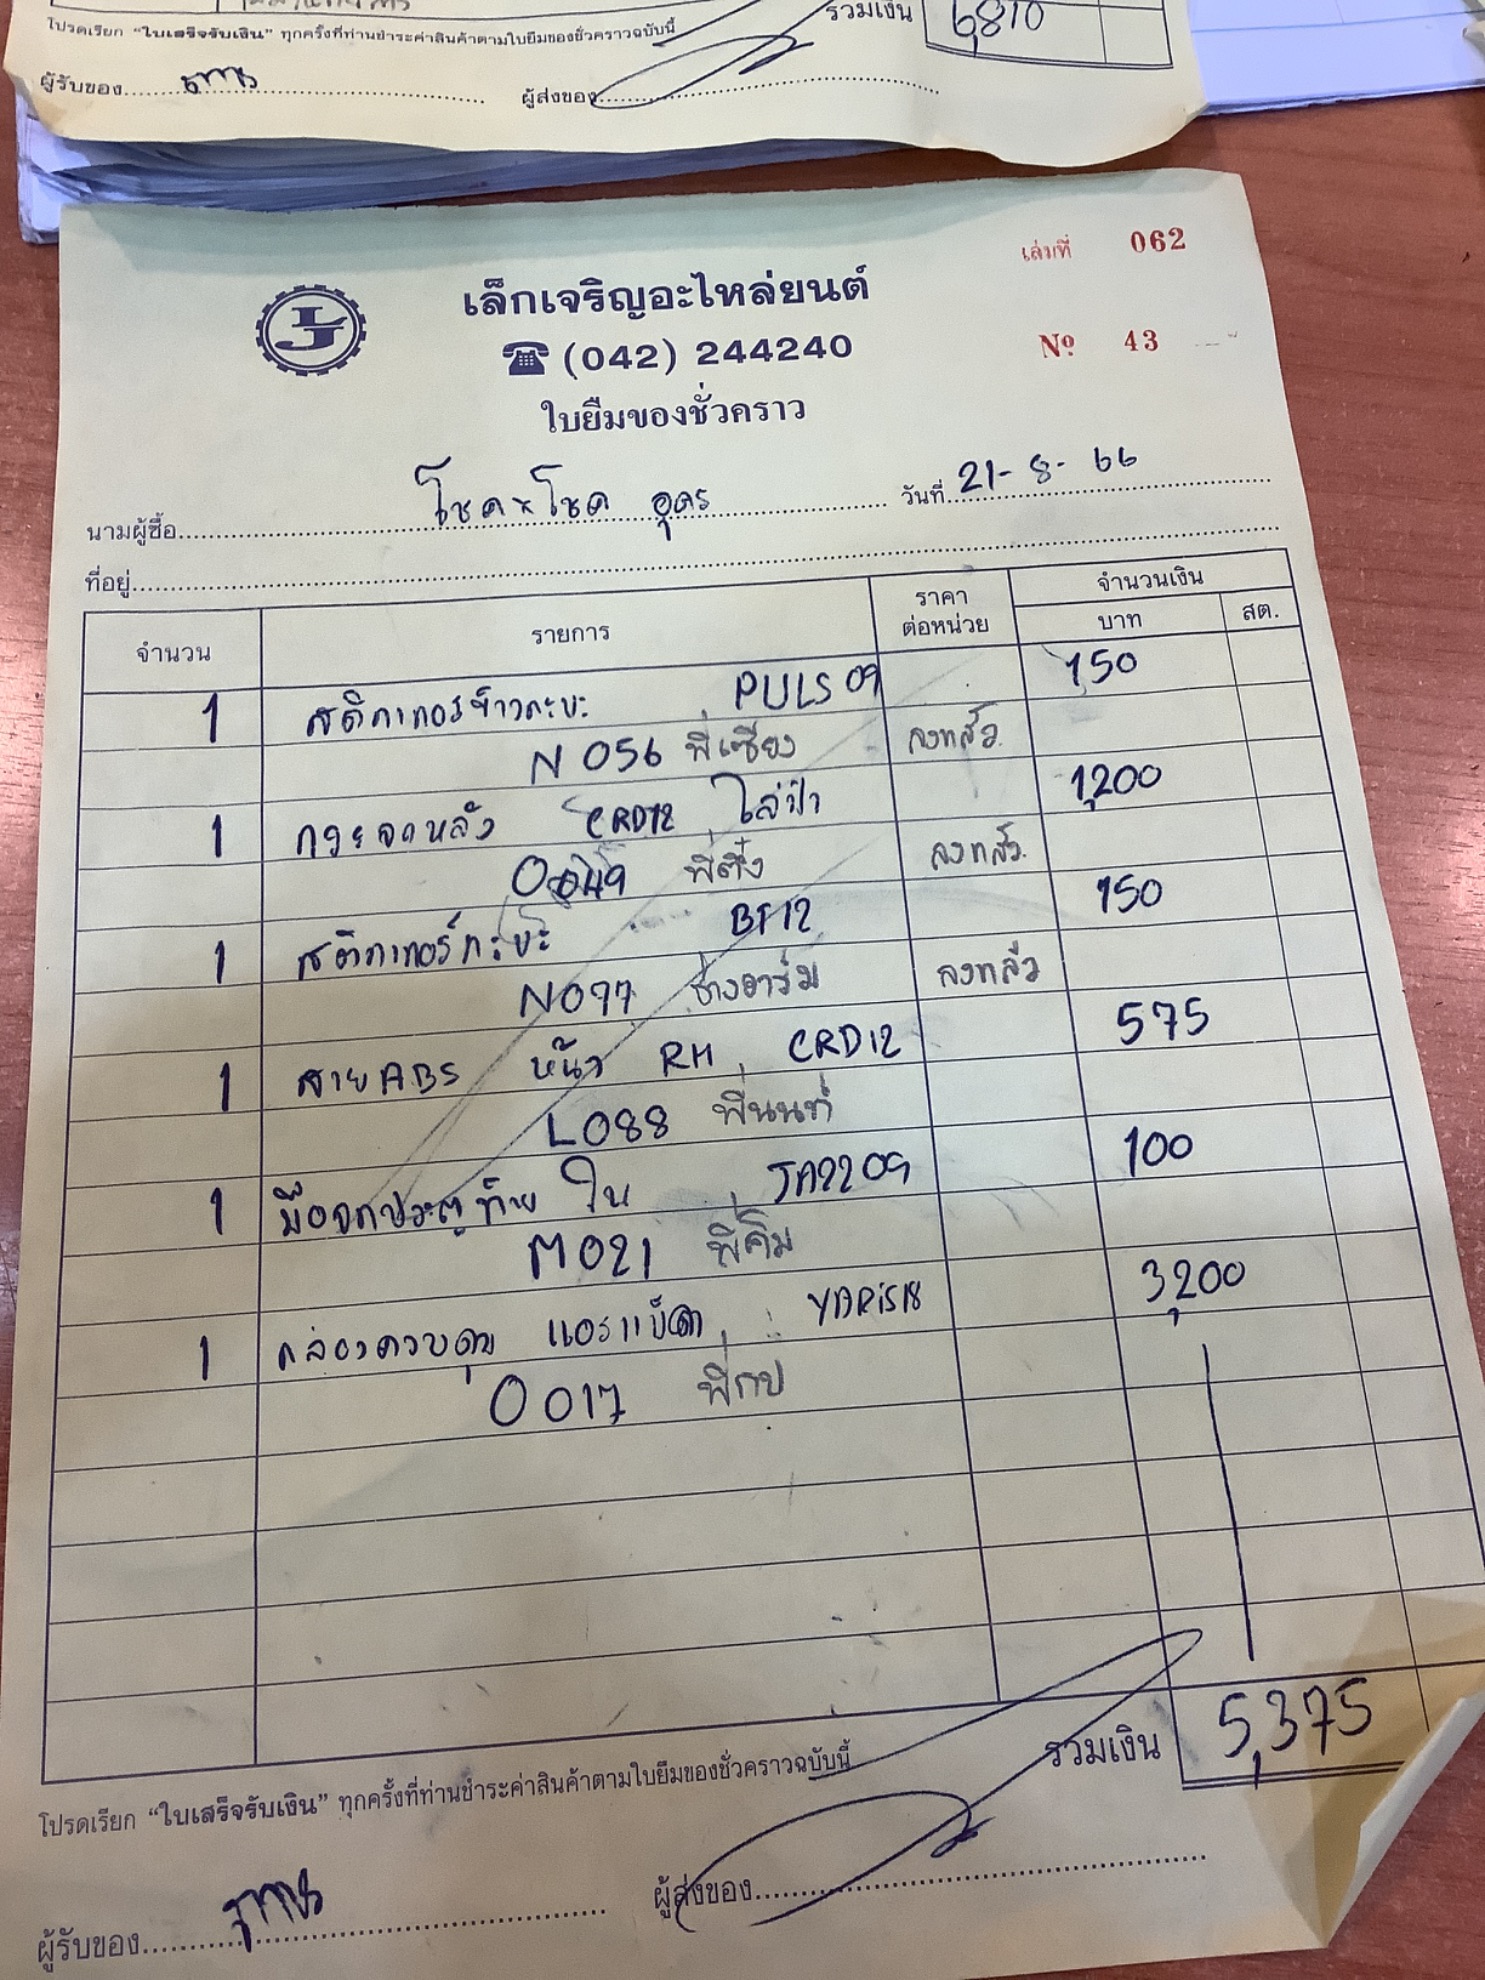 รวมเงิน 6,810
โปรดเรียก “ใบเสร็จรับเงิน” ทุกครั้งที่ท่านชำระค่าสินค้าตามใบยืมของชั่วคราวฉบับนี้
ผู้รับของ ผู้ส่งของ
เล่มที่ 062
เล็กเจริญอะไหล่ยนต์
LJ
☎ (042) 244240
Nº 43
ใบยืมของชั่วคราว
นามผู้ซื้อ โชคxโชค อุดร วันที่ 21-8-66
ที่อยู่
จำนวน รายการ ราคาต่อหน่วย จำนวนเงิน
บาท สต.
1 สติกเกอร์ข้างกะบะ PULS 09 150
N 056 พี่เซียง ลงแล้ว
1 กระจกหลัง CRD12 ใส่ฝ้า 1,200
พี่ตึ๋ง ลงแล้ว
1 สติกเกอร์กะบะ BT12 150
N097 ช่างอาร์ม ลงแล้ว
1 สาย ABS หน้า RH CRD12 575
L088 พี่นนท์
1 มือจกประตูท้าย ใน JA2209 100
M021 พี่คิม
1 กล่องควบคุม แอร์แบ็ค YARiS18 3,200
0017 พี่กบ
รวมเงิน 5,375
โปรดเรียก “ใบเสร็จรับเงิน” ทุกครั้งที่ท่านชำระค่าสินค้าตามใบยืมของชั่วคราวฉบับนี้
ผู้รับของ ผู้ส่งของ